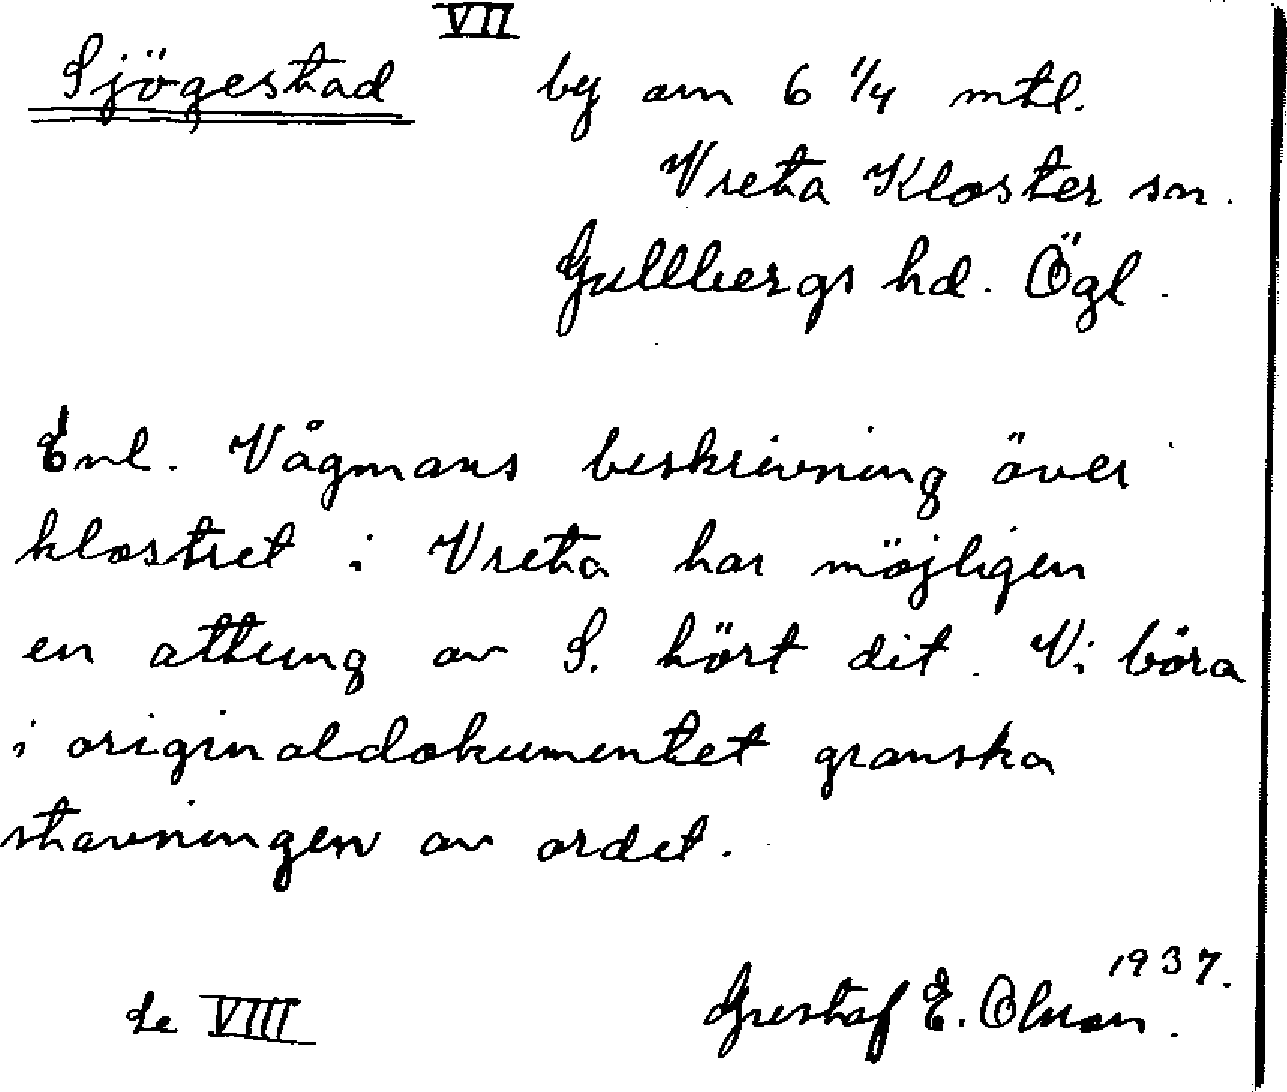 VII
Sjögestad by om 6 1/4 mtl.
Vreta Kloster sn.
Gullbergs hd. Ögl.
Enl. Vågmans beskrivning över
klostret i Vreta har möjligen
en attung av S. hört dit. Vi böra
i originaldokumentet granska
stavningen av ordet.
1937.
Se VIII Gustaf E. Olsson.